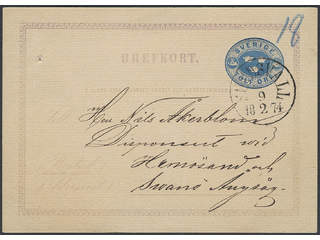 18
BREFKORT.
SVERIGE
TOLF ÖRE
9
18 2 74
Herr Nils Åkerblom
Disponent vid
Hernösand och
Svanö Ångsåg.